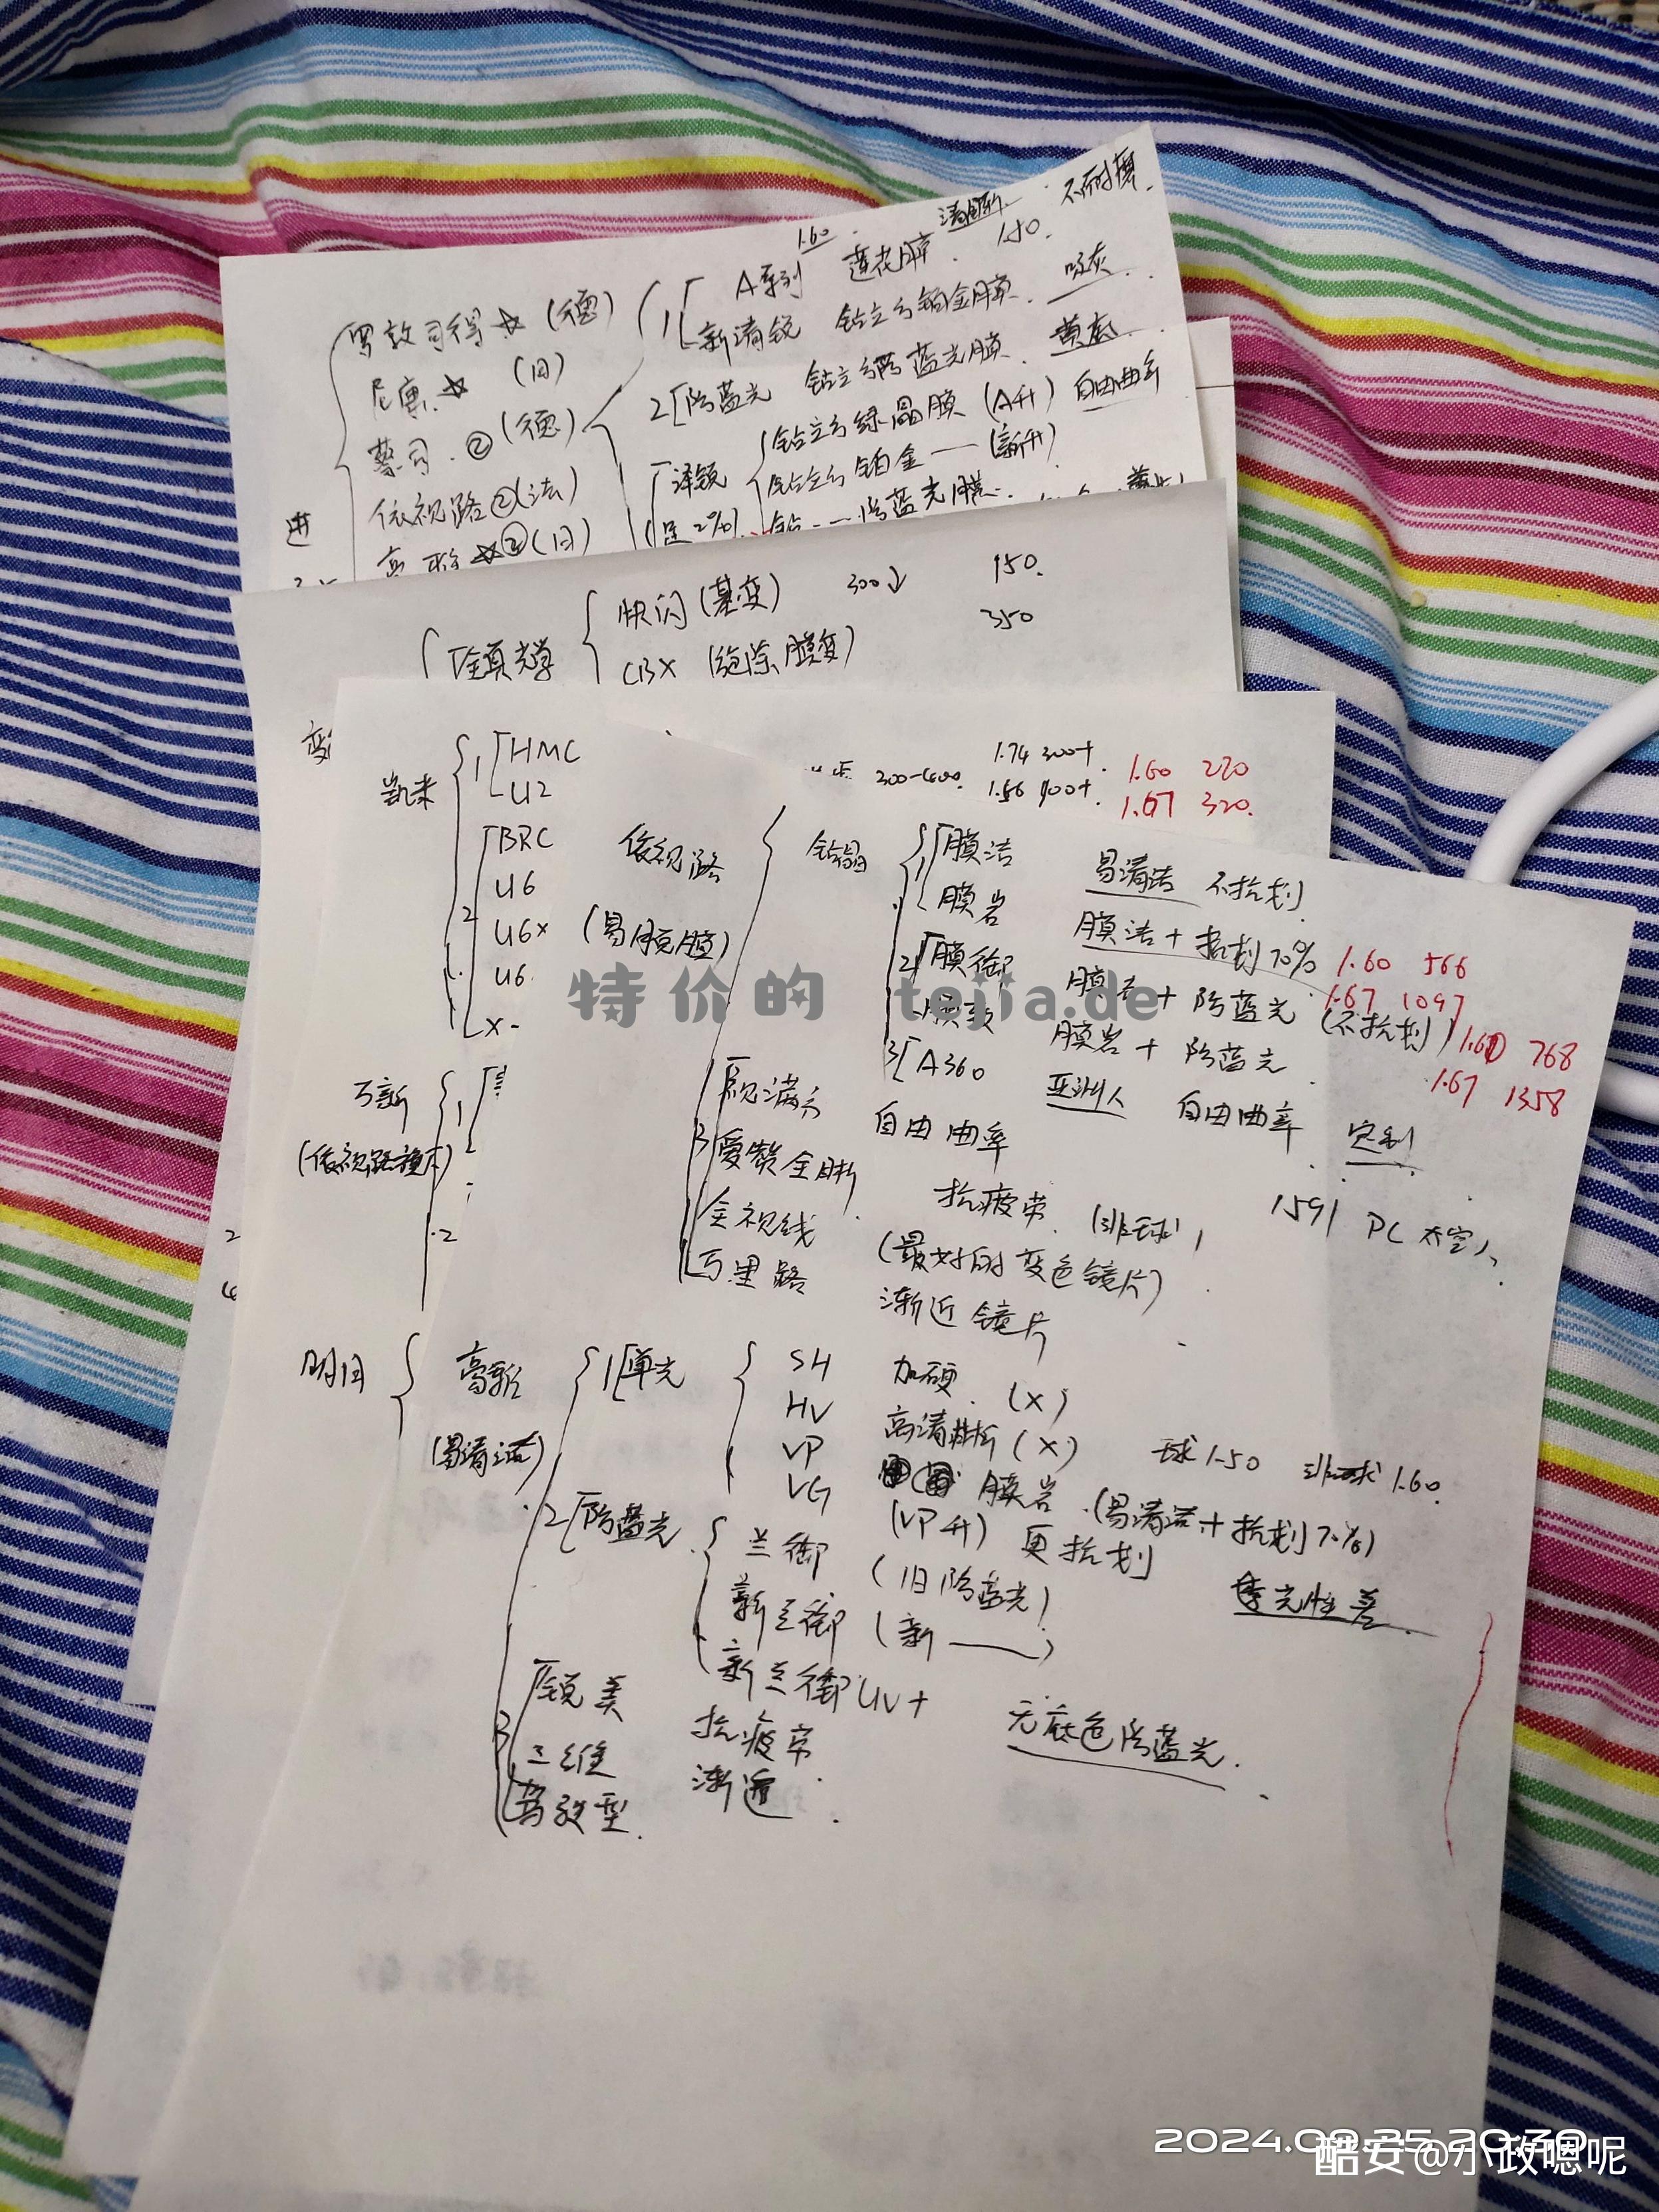 1.60 清晰 不耐磨.
罗敦司得 ☆ (德) 1 A系列 莲花膜 150.
新清锐 钻立方铂金膜. 吸灰.
尼康 ☆ (日)
2 防蓝光 钻立方防蓝光膜. 黄底.
蔡司. ② (德)
泽锐 钻立方绿晶膜 (A升) 自由曲率
钻立方铂金 — (新升)
依视路②(法)
钻 — 防蓝光膜.
进
☆②(日)
快闪 (基变) 300↓ 150.
CBX (膜变) 350
变
凯米 1 HMC
U2
300-600. 1.74 300+. 1.60 220
1.56 400+. 1.67 320.
BRC
2 U6
U6x (易脱膜)
U6
X-
依视路 钻晶 1 膜洁 易清洁 不抗划
膜岩 膜洁 + 抗划70% 1.60 566
1.67 1097
2 膜御 膜洁 + 防蓝光 (不抗划) 1.60 768
膜致 膜岩 + 防蓝光 1.67 1358
3 A360 亚洲人 自由曲率 定制
特价的 tejia.de
万新 1
(依视路控)
2
3 爱赞全晰 自由曲率
全视线 抗疲劳 (非球) 1.591 PC
万里路 (最好的变色镜片)
渐近镜片
明月 高新 1 单光 SH 加硬 (X)
(易清洁) HV 高清 (X) 球1.50 非球1.60.
VP 膜岩 (易清洁 + 抗划70%)
VG (VP升) 更抗划
2 防蓝光 兰御 (旧防蓝光) 透光性差
新兰御 (新 —)
新兰御UV+ 无底色防蓝光.
3
三维 抗疲劳
渐近
2024.08.25 20:30
酷安@小政嗯呢